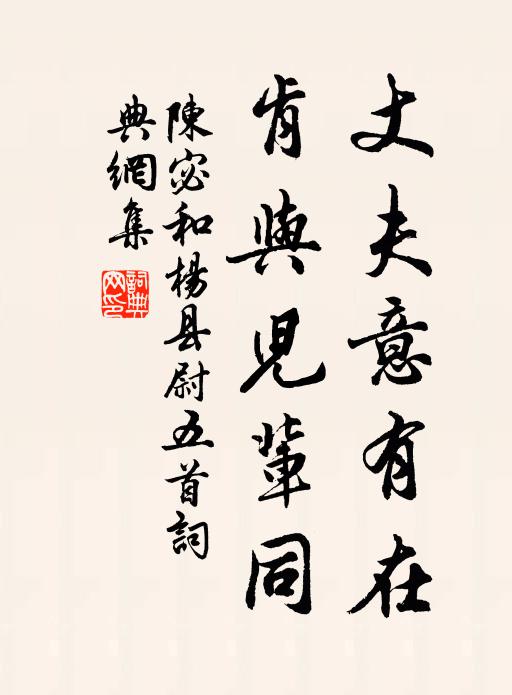 丈夫意有在
肯與兒輩同
陳宓和楊县尉五首詞
典網集
詞典网印